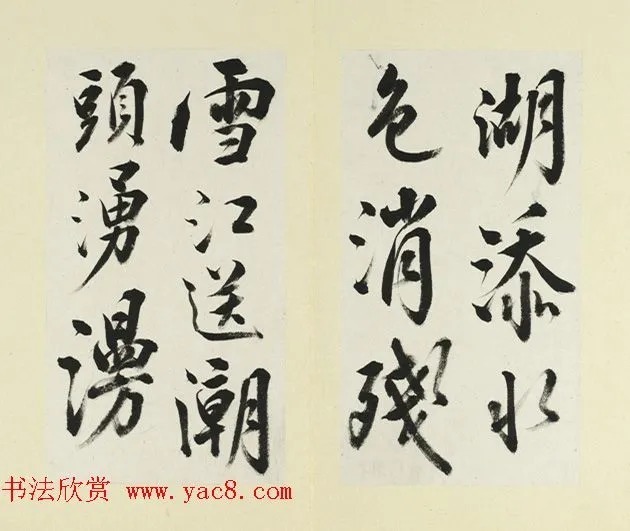 湖添水
色消殘
雪江送潮
頭湧漫
书法欣赏 www.yac8.com